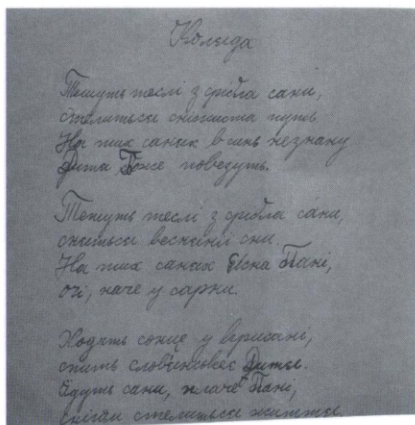 Коляда
Тешуть теслі з срібла сани,
стелиться сніжиста путь.
На тих санях в синь незнану
Дитя Боже повезуть.
Тешуть теслі з срібла сани,
сняться веснянії сни.
На тих санях Ясна Пані,
очі, наче у сарни.
Ходить сонце у крисані,
спить слов'янськеє Дитя.
Їдуть сани, плаче Пані,
снігом стелиться життя.